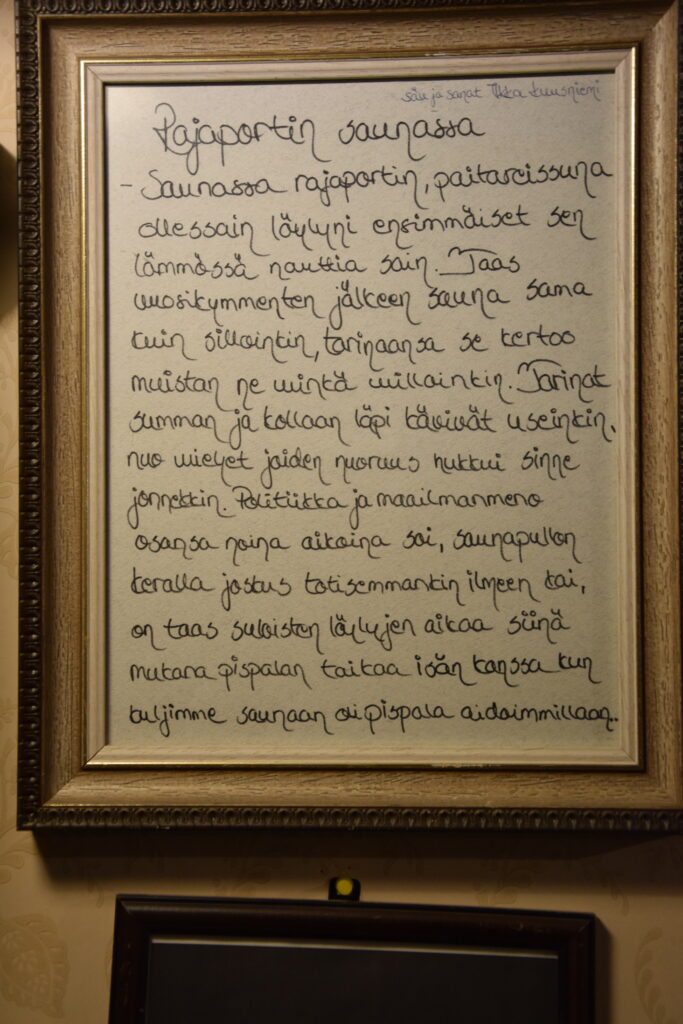 säv ja sanat Ilkka Kuusniemi
Rajaportin saunassa
- Saunassa rajaportin, paitaressuna
ollessain löylyni ensimmäiset sen
lämmössä nauttia sain. Taas
vuosikymmenten jälkeen sauna sama
kuin silloinkin, tarinaansa se kertoo
muistan ne vinkä milloinkin. Tarinat
summan ja kollaan läpi kävivät useinkin,
nuo miehet joiden nuoruus hukkui sinne
jonnekkin. Politiikka ja maailmanmeno
osansa noina aikoina sai, saunapullon
keralla joskus totisemmankin ilmeen kai,
on taas suloisten löylyjen aikaa siinä
mukana pispalan taikaa isän kanssa kun
kuljimme saunaan oi pispala aidoimmillaan..